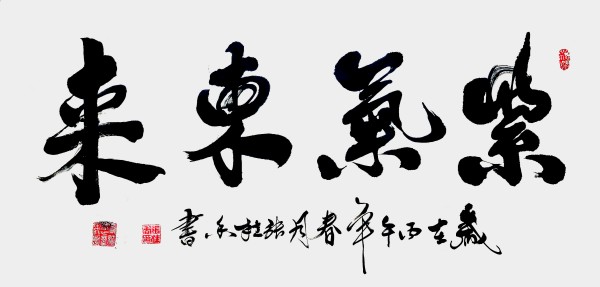 紫氣東来
歲在丙午年春月張桂香書